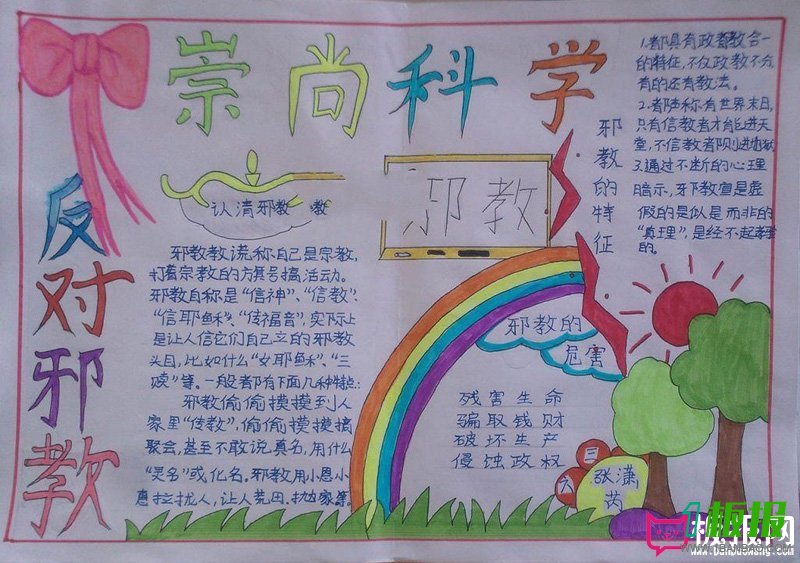 崇尚科学
反对邪教
认清邪教 教
邪教教谎称自己是宗教,
打着宗教的方旗号搞活动。
邪教自称是“信神”、“信教”、
“信耶稣”、“传福音”,实际上
是让人信它们自己立的邪教
头目,比如什么“女耶稣”、“三
赎”等。一般都有下面几种特点:
邪教偷偷摸摸到人
家里“传教”,偷偷摸摸搞
聚会,甚至不敢说真名,用什么
“灵名”或化名。邪教用小恩小
惠拉拢人,让人荒田、抛家等
邪教
邪教的特征
1.都具有政教合一
的特征,不仅政教不分
有的还有教法。
2.都陆称有世界末日,
只有信教者才能进天
堂,不信教者则进地狱
3.通过不断的心理
暗示,牙下教宣是虚
假的是似是而非的
“真理”,是经不起
的。
邪教的
危害
残害生命
骗取钱财
破坏生产
侵蚀政权
六 三
张潇
芮
板报网
www.banbaowang.com